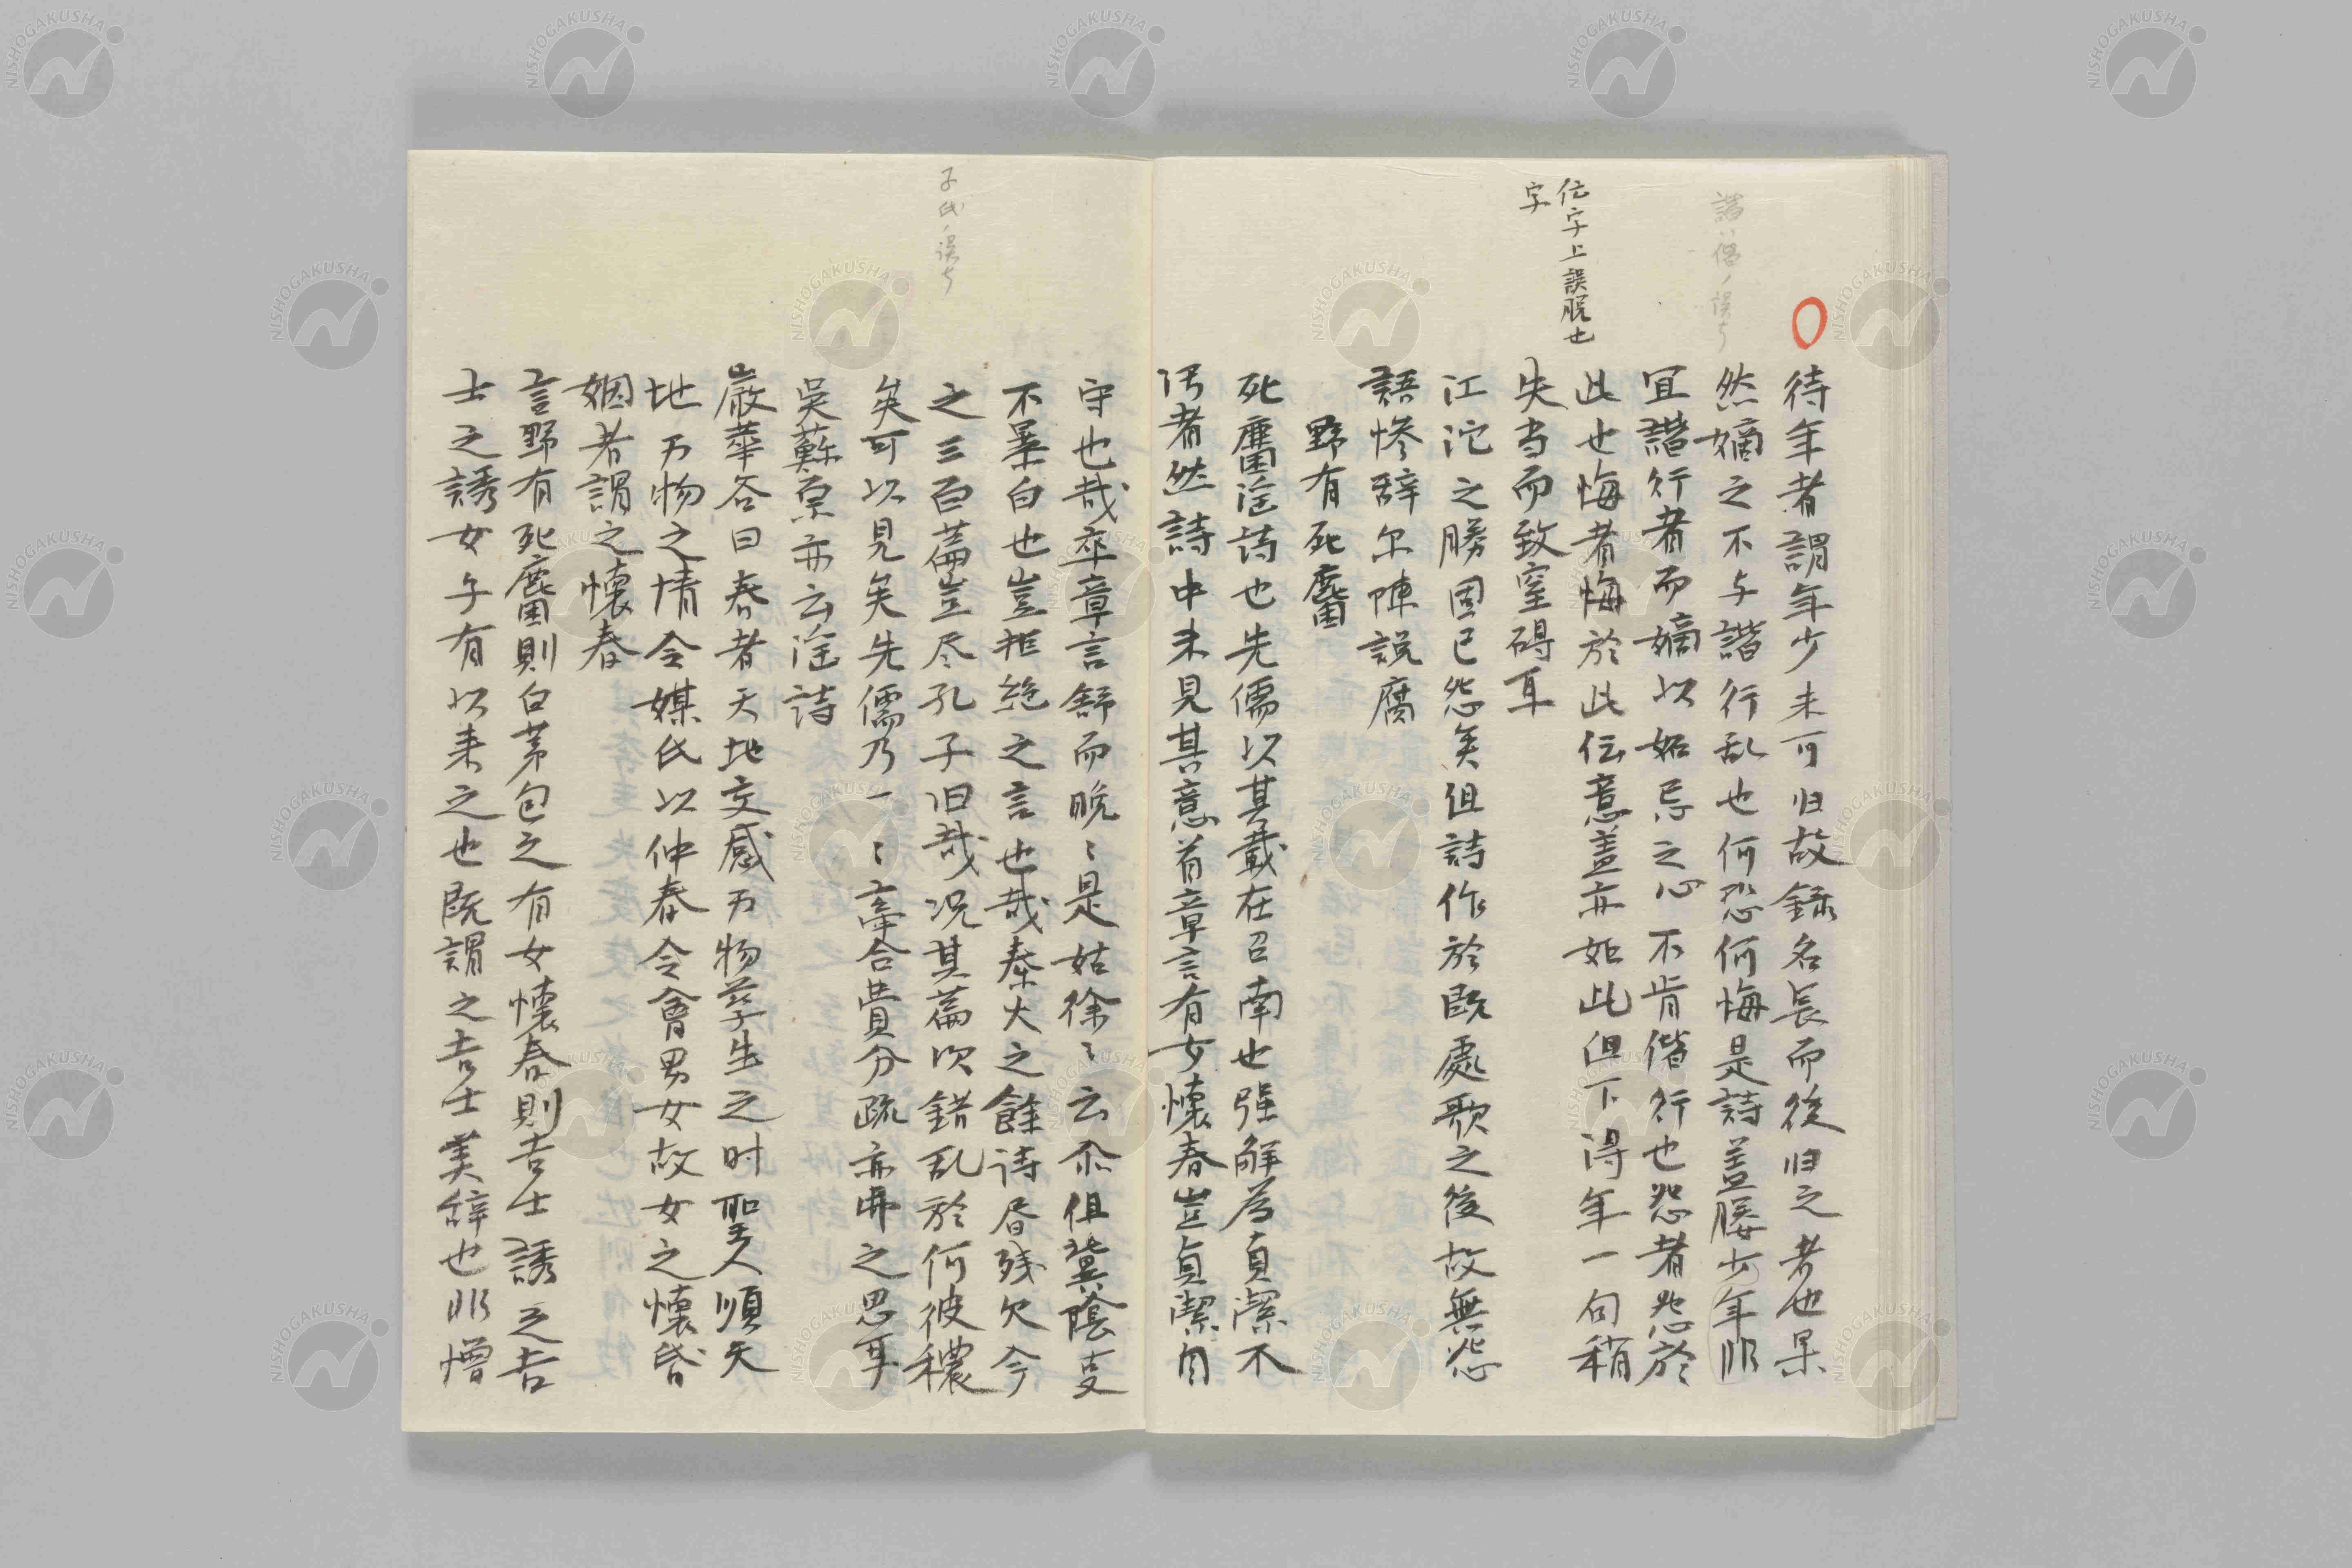 待年者謂年少未可归故録名長而後归之者也果
然嫡之不与諧行乱也何怨何悔是詩蓋媵少年非
宜諧行者而嫡以妬忌之心不肯偕行也怨者怨於
此也悔者悔於此伝意盖亦如此但下得年一句稍
失当而致窒碍耳
江沱之勝固已怨矣但詩作於既處歌之後故無怨
語惨辞尓陳説腐
野有死麕
死麕淫詩也先儒以其載在召南也强解為貞潔不
汚者然詩中未見其意首章言有女懐春豈貞潔自
守也哉卒章言舒而脱〻是姑徐〻云尓但冀陰支
不暴白也豈拒絶之言也哉秦火之餘詩昏残欠今
之三百篇豈尽孔子旧哉况其篇次錯乱於何彼穠
矣可以見矣先儒乃一〻牽合費分疏亦弗之思耳
吳蘇原亦云淫詩
嚴華谷曰春者天地交感万物孳生之时聖人順天
地万物之情令媒氏以仲春令會男女故女之懐昏
姻者謂之懐春
言野有死麕則白茅包之有女懐春則吉士誘之吉
士之誘女子有以来之也既謂之吉士美辞也非憎
諧ハ偕ノ誤ナラ
伝字上誤脱也
字
子氏ノ誤ナラ
NISHOGAKUSHA